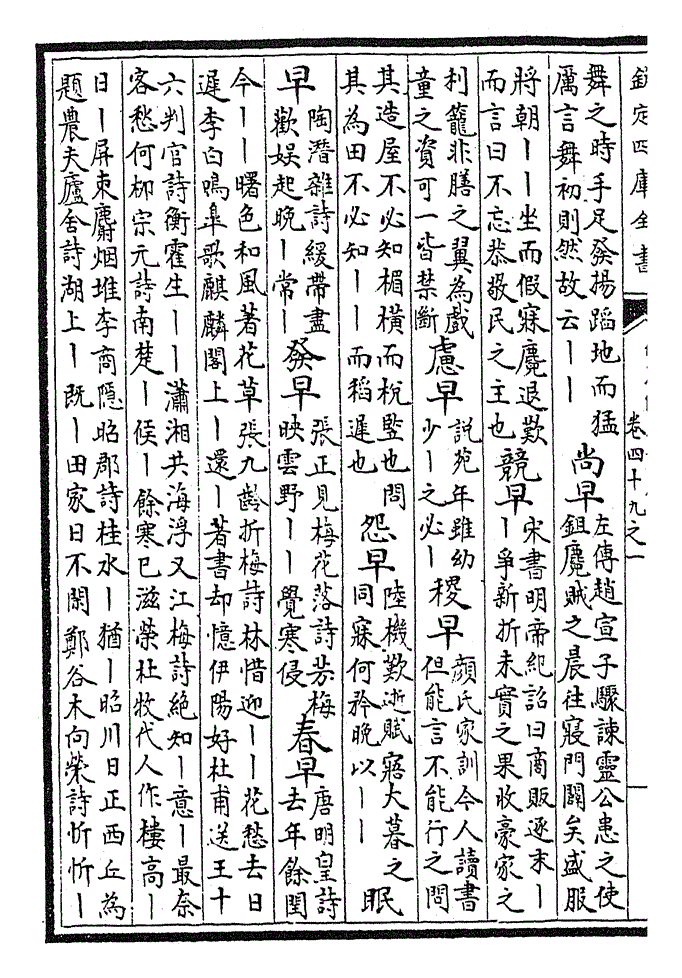 欽定四庫全書
卷四十九之一
舞之時手足發揚蹈地而猛
厲言舞初則然故云｜｜
尚早
左傳趙宣子驟諫靈公患之使
鉏麑賊之晨往寢門闢矣盛服
將朝｜｜坐而假寐麑退歎
而言曰不忘恭敬民之主也
競早
宋書明帝紀詔曰商販逐末｜
｜爭新折未實之果收豪家之
利籠非膳之翼為戲
童之資可一皆禁斷
慮早
說苑年雖幼
少｜之必｜
稷早
顏氏家訓今人讀書
但能言不能行之問
其造屋不必知楣橫而梲豎也問
其為田不必知｜｜而稻遲也
怨早
陸機歎逝賦寤大暮之
同寐何矜晚以｜｜
眠
早
陶潛雜詩緩帶盡
歡娛起晚｜常｜
發早
張正見梅花落詩芳梅
映雲野｜｜覺寒侵
春早
唐明皇詩
去年餘閏
今｜｜曙色和風著花草張九齡折梅詩林惜迎｜｜花愁去日
遲李白鳴臯歌麒麟閣上｜還｜著書却憶伊陽好杜甫送王十
六判官詩衡霍生｜｜瀟湘共海浮又江梅詩絕知｜意｜最奈
客愁何柳宗元詩南楚｜侯｜餘寒已滋榮杜牧代人作樓高｜
日｜屏束麝烟堆李商隱昭郡詩桂水｜猶｜昭川日正西丘為
題農夫廬舍詩湖上｜既｜田家日不閑鄭谷木向榮詩忻忻｜